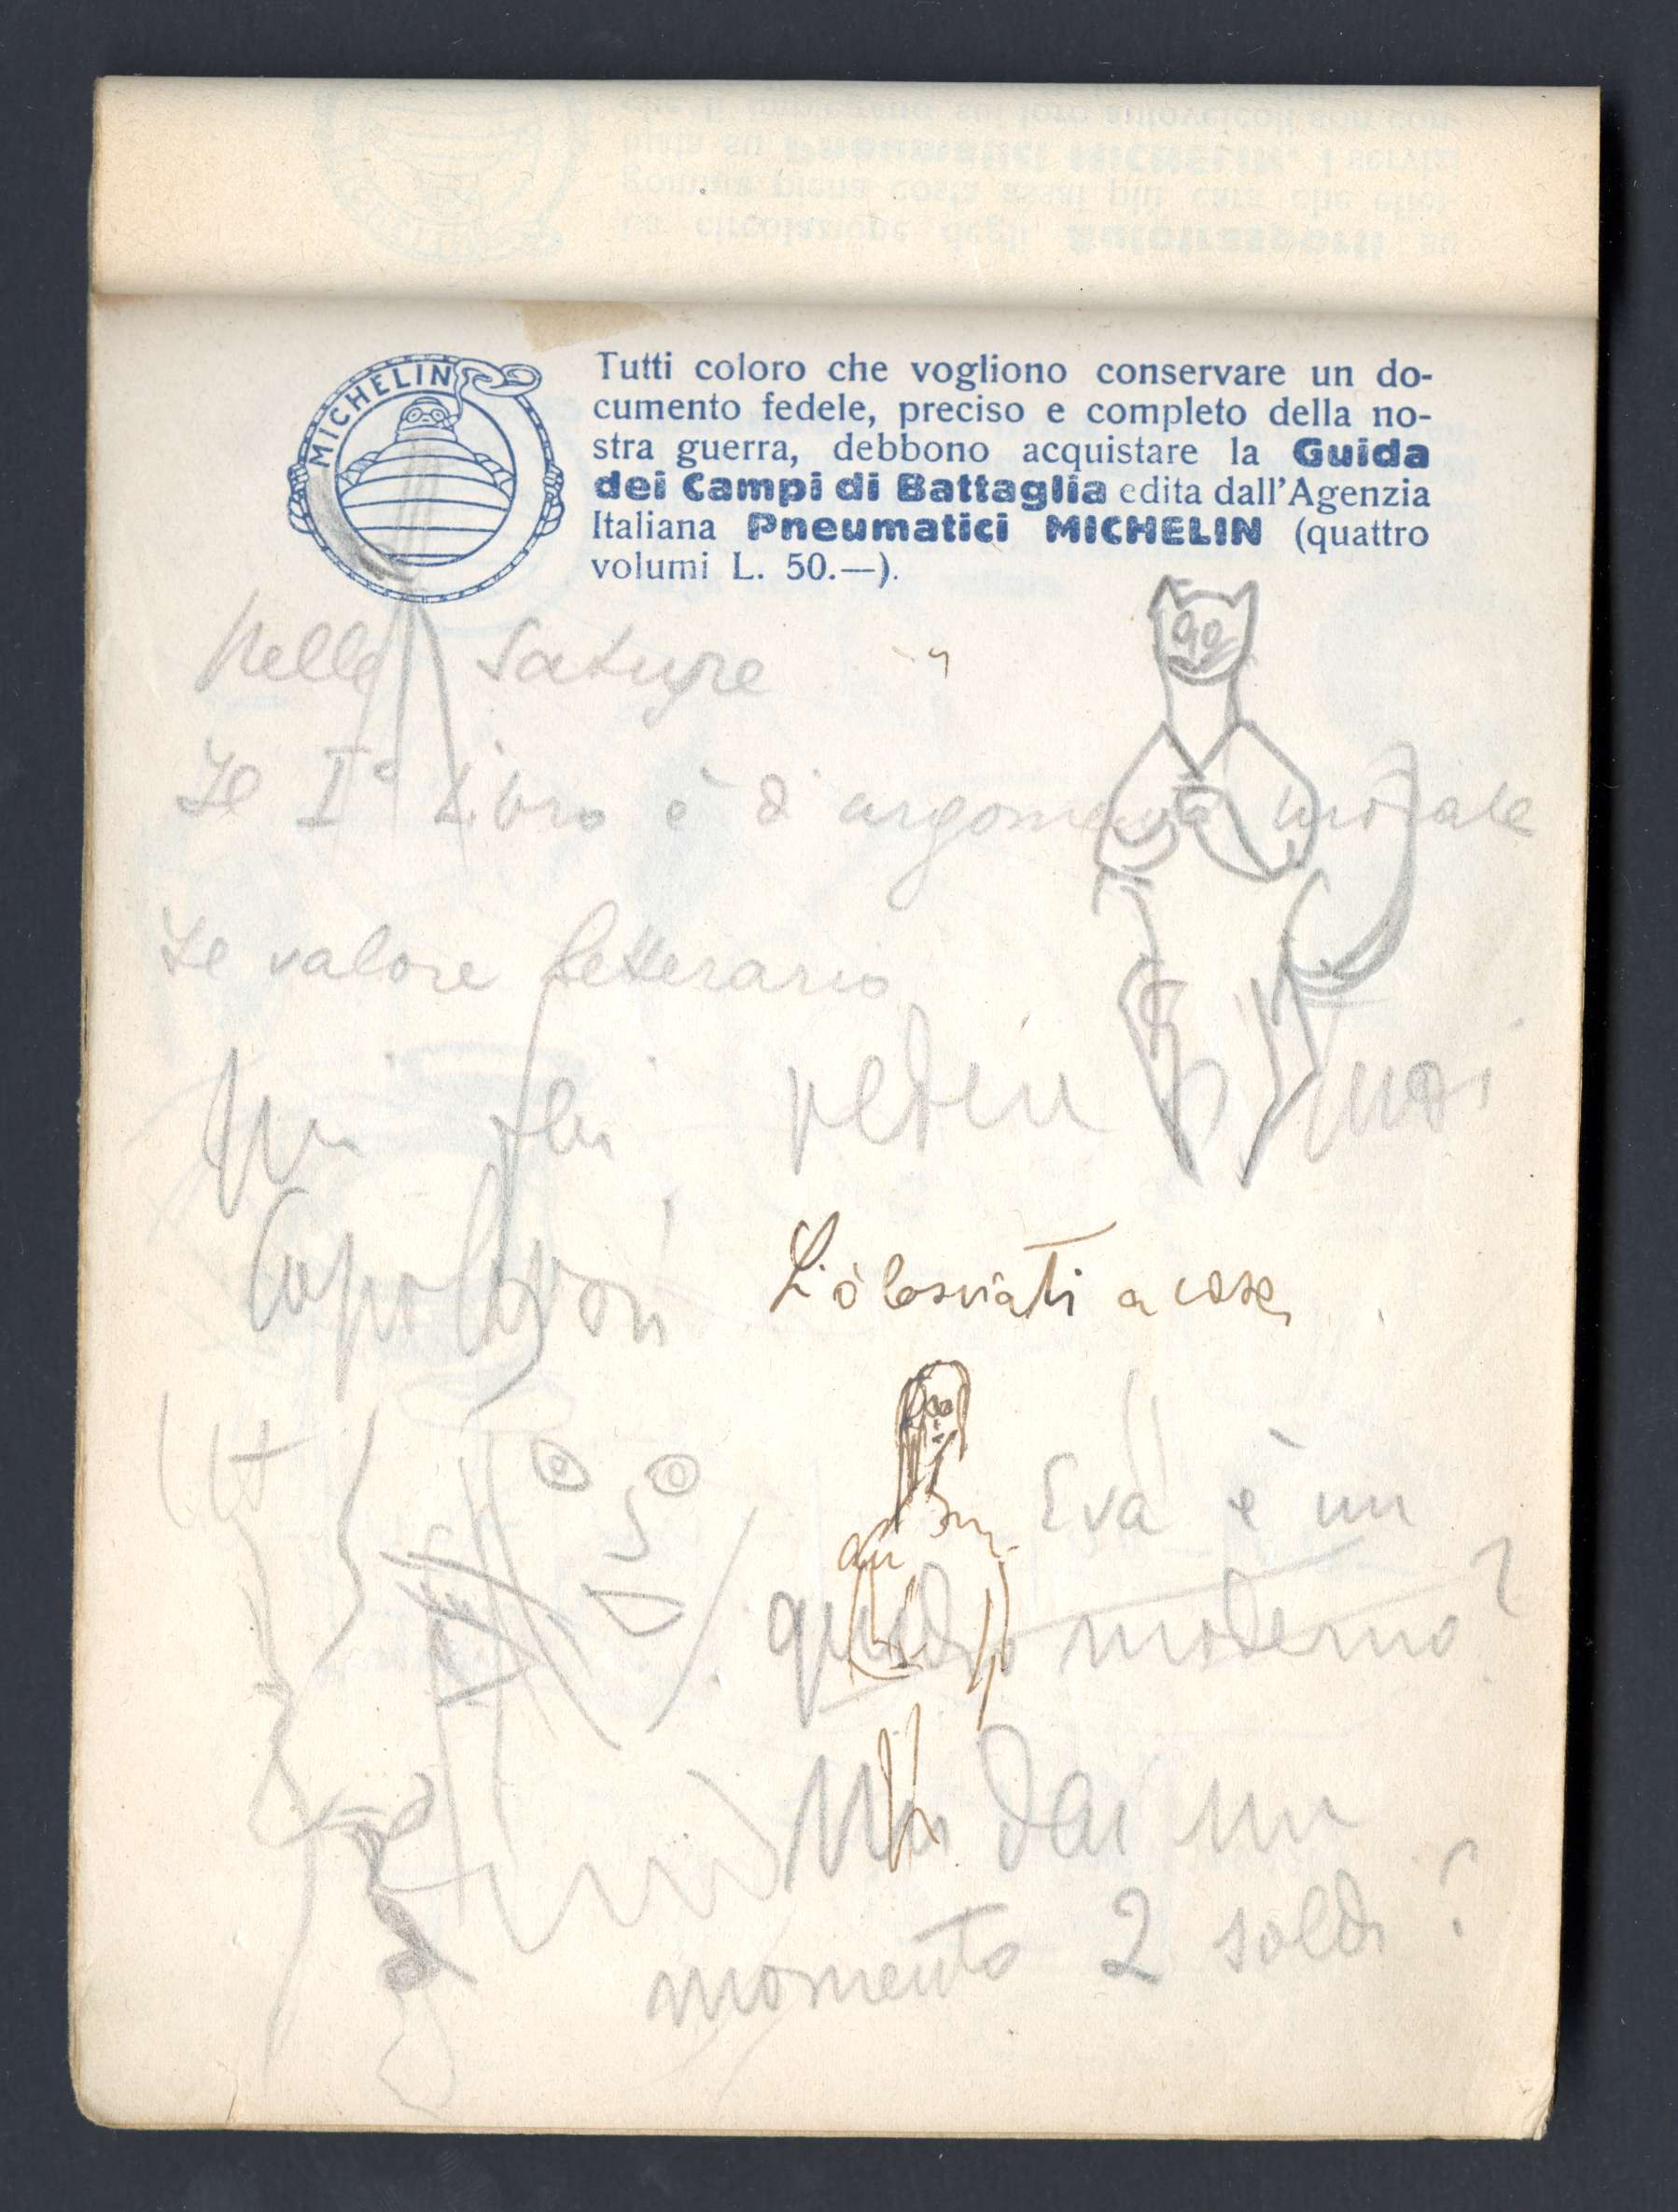 MICHELIN
Tutti coloro che vogliono conservare un do-
cumento fedele, preciso e completo della no-
stra guerra, debbono acquistare la Guida
dei Campi di Battaglia edita dall'Agenzia
Italiana Pneumatici MICHELIN (quattro
volumi L. 50.—).
Nelle Satyre
Il I° Libro è d'argomento morale
Il valore letterario
Capolavori
L'ò lasciati a casa
Eva è un
quadro moderno?
Mi dai un
momento 2 soldi?